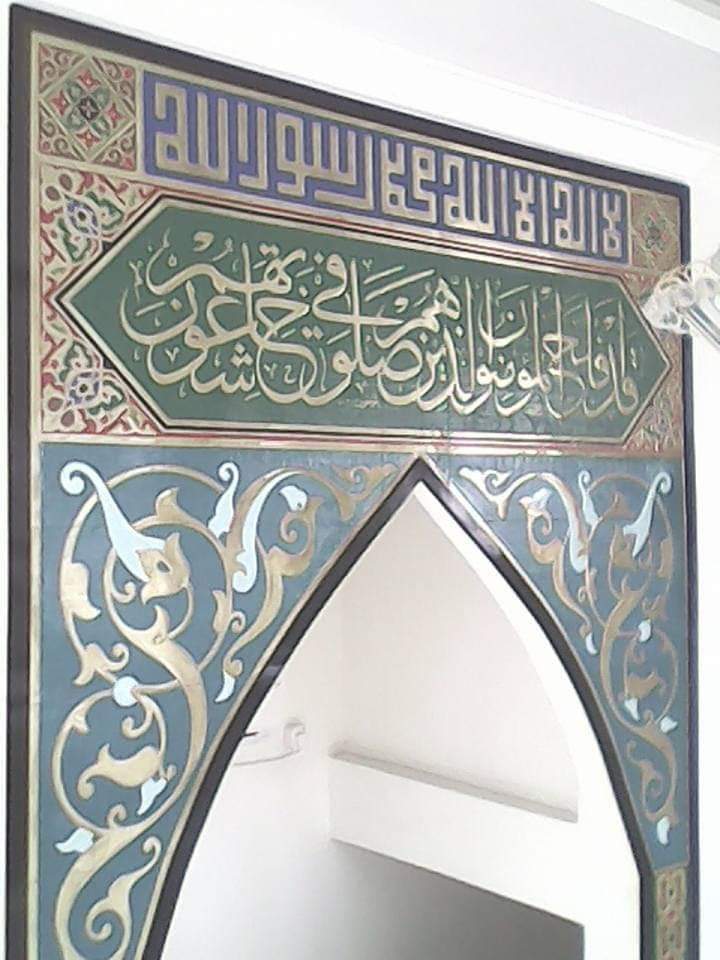 لا اله الا الله محمد رسول الله
قد افلح المؤمنون الذين هم في صلوتهم خاشعون